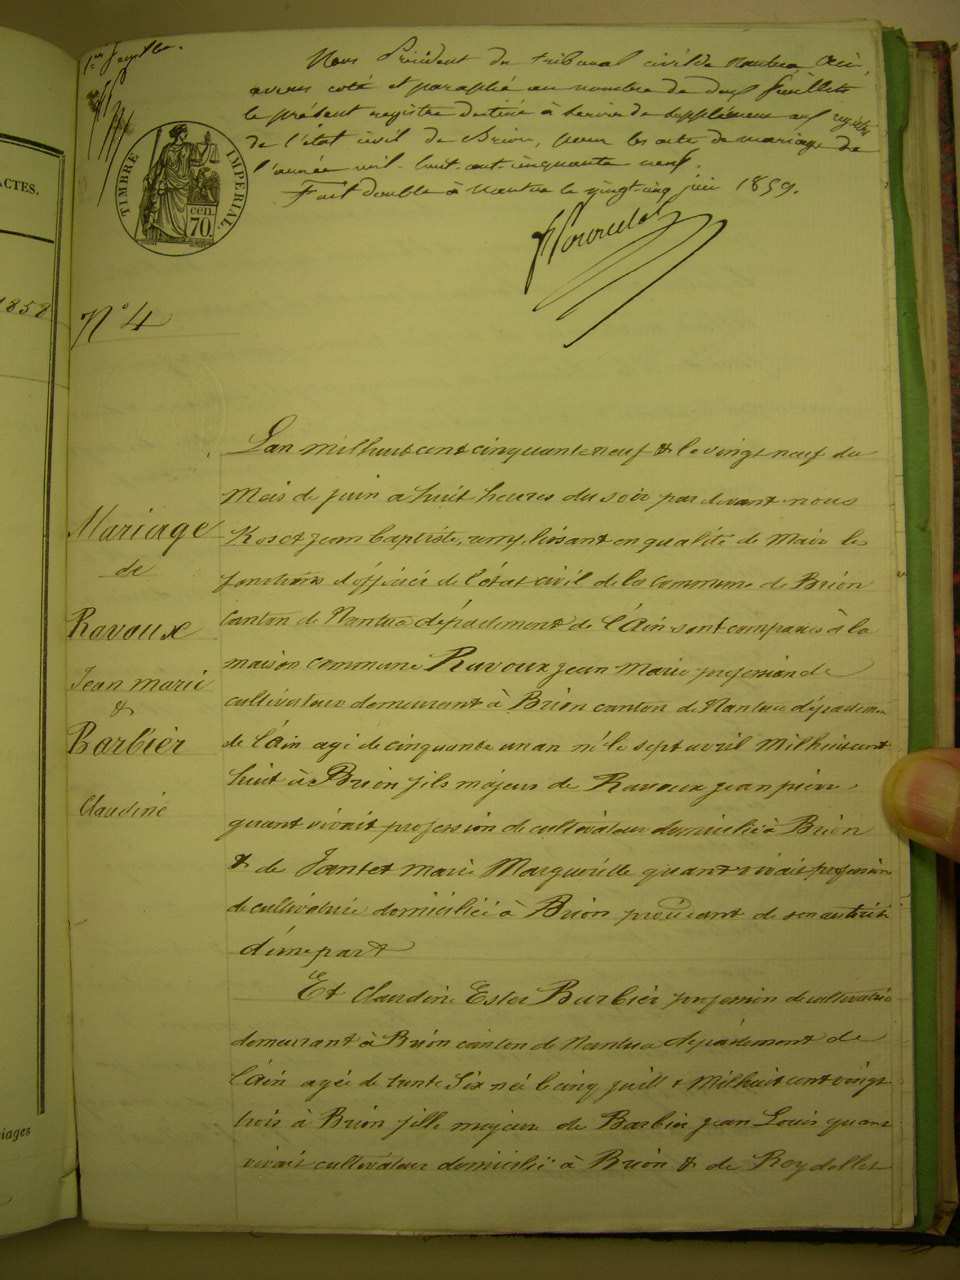 1er feuillet.
Nous Président du tribunal civil de Nantua (Ain)
avons coté et paraphé au nombre de deux feuillets
le présent registre destiné à servir de supplément aux registres
de l'état civil de Brion, pour les actes de mariage de
l'année mil huit cent cinquante neuf.
Fait double à Nantua le vingt cinq juin 1859.
TIMBRE IMPERIAL
70 cen.
ACTES.
N° 4
Lan milhuit cent cinquante neuf & le vingt neuf du
Mois de juin a huit heures du soir par devant nous
Rosct jean baptiste, remplissant en qualité de Maire les
fonctions d'officier de l'état civil de la commune de Brion
canton de Nantua département de l'Ain sont comparus à la
maison commune Ravoux jean Marie profession de
cultivateur demeurant à Brion canton de Nantua département
de l'Ain agé de cinquante un an né le sept avril Milhuit cent
huit à Brion fils majeur de Ravoux jean pierre
quant vivait profession de cultivateur domicilié à Brion
& de Jantet marie Marguerite quant vivait profession
de cultivatrice domiciliée à Brion procédant de son autorité
d'une part
Et Claudine Ester Barbier profession de cultivatrice
demeurant à Brion canton de Nantua département de
l'Ain agée de trente six née le cinq juillet Milhuit cent vingt
trois à Brion fille majeure de Barbier jean Louis quant
vivait cultivateur domicilié à Brion & de Roydellet
Mariage
de
Ravoux
Jean marie
&
Barbier
Claudine